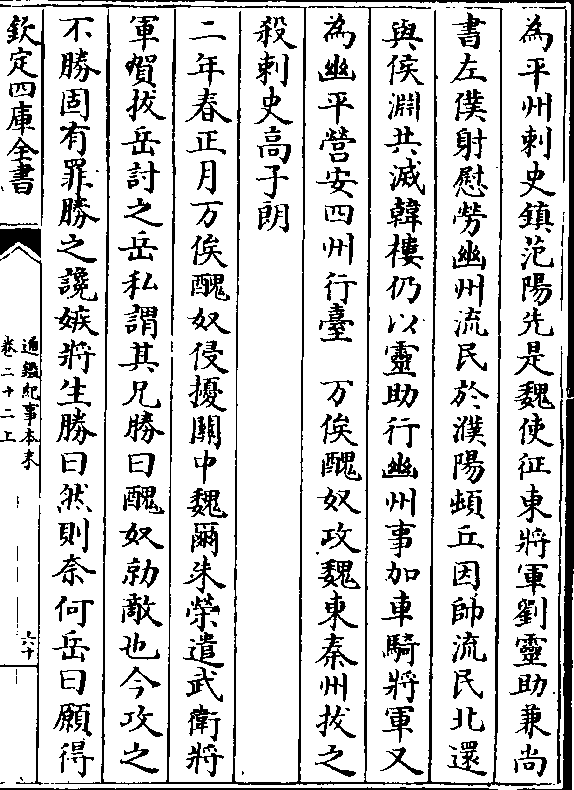 為平州刺史鎮范陽先是魏使征東將軍劉靈助兼尚
書左僕射慰勞幽州流民於濮陽頓丘因帥流民北還
與侯淵共滅韓樓仍以靈助行幽州事加車騎將軍又
為幽平營安四州行臺　万俟醜奴攻魏東秦州拔之
殺刺史高子朗
二年春正月万俟醜奴侵擾關中魏爾朱榮遣武衛將
軍賀拔岳討之岳私謂其兄勝曰醜奴勍敵也今攻之
不勝固有罪勝之讒嫉將生勝曰然則奈何岳曰願得
欽定四庫全書
通鑑紀事本末
卷二十二上
六十